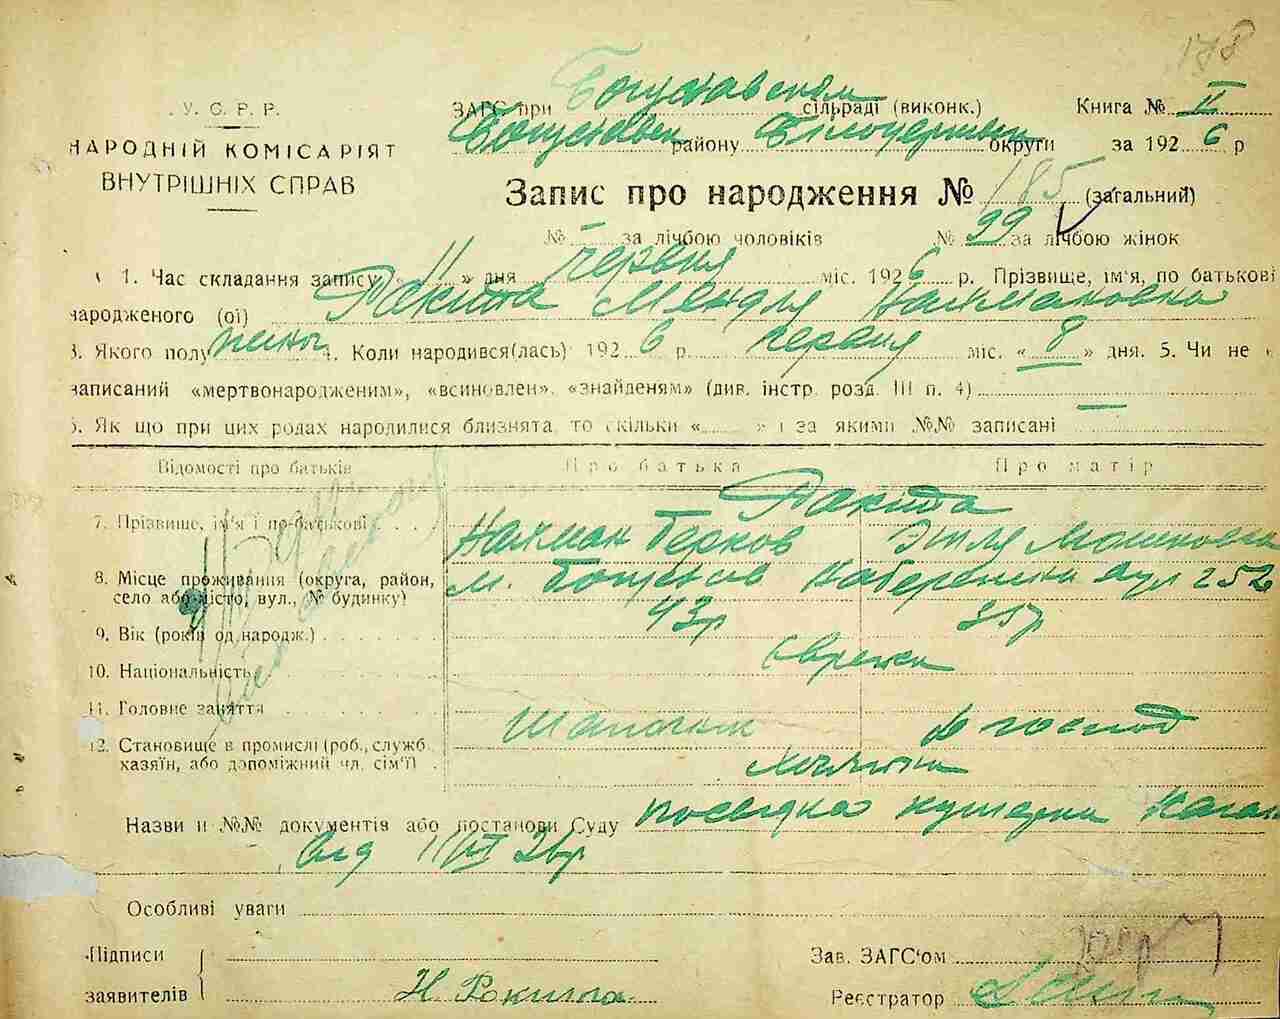 178
У.С.Р.Р.
НАРОДНІЙ КОМІСАРІЯТ
ВНУТРІШНІХ СПРАВ
ЗАГС при Богуславськім сільраді (виконк.) Книга № II
Богуславськ району Білоцерківськ округи за 1926 р
Запис про народження № 185 (загальний)
№ за лічбою чоловіків № 99 за лічбою жінок
1. Час складання запису 11 » дня червня міс. 1926 р. Прізвище, ім'я, по батькові
народженого (ої) Ракита Нахмановна
3. Якого полу жіноч 4. Коли народився(лась) 1926 р. червня міс. « 8 » дня. 5. Чи не
записаний «мертвонародженим», «всиновлен». «знайденям» (див. інстр. розд. III п. 4)
6. Як що при цих родах народилися близнята, то скільки « » і за якими №№ записані —
Відомості про батьків Про батька Про матір
7. Прізвище, ім'я і по-батькові Ракита
Нахман Берков Этля Мошковна
8. Місце проживання (округа, район, м. Богуслав Набережна вул 252
село або місто, вул., № будинку)
9. Вік (років од народж.) 43р 35р
10. Національність Євреї
11. Головне заняття Шапочник в господ
12. Становище в промислі (роб., служб.
хазяїн, або допоміжний чл. сім'ї)
Назви и №№ документів або постанови Суду посвідка Каган
від 11/VI 26р
Особливі уваги
Підписи
заявителів Н. Рокита
Зав. ЗАГС'ом
Реєстратор